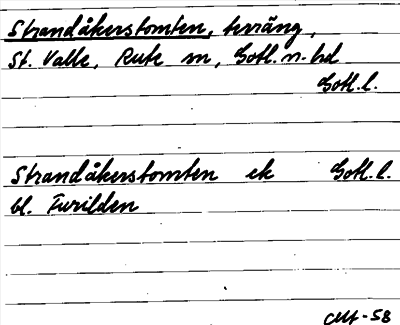 Strandåkerstomten, terräng,
St. Valle, Rute sn, Gotl. n. hd
Gotl. l.
Strandåkerstomten ek Gotl. l.
bl. Furilden
-58